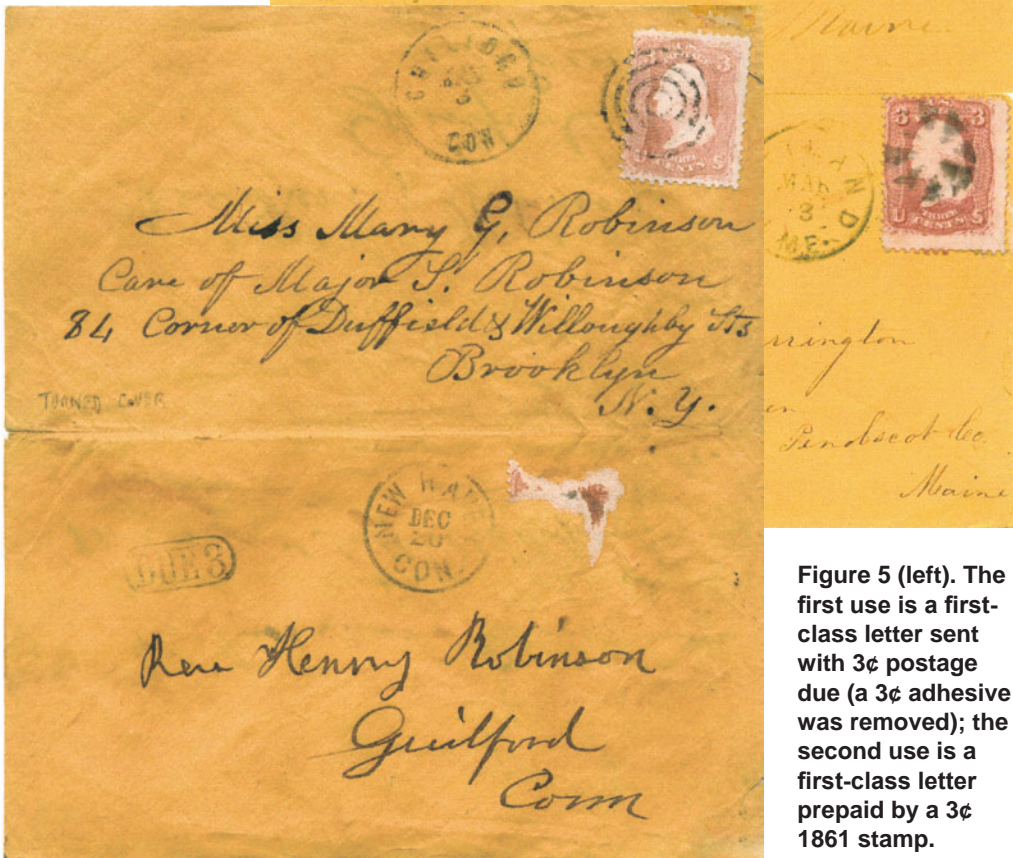 Maine
GUILFORD
3
CON
3
CENTS
Miss Mary G, Robinson
Care of Major S. Robinson
84 Corner of Duffield & Willoughby Sts
Brooklyn
N.Y.
TURNED COVER
NEW HAVEN
DEC
20
CON.
DUE 3
Rev Henry Robinson
Guilford
Conn
3 3
U THREE S
CENTS
MAR
3
ME.
rrington
en
Penobscot Co.
Maine
Figure 5 (left). The
first use is a first-
class letter sent
with 3¢ postage
due (a 3¢ adhesive
was removed); the
second use is a
first-class letter
prepaid by a 3¢
1861 stamp.